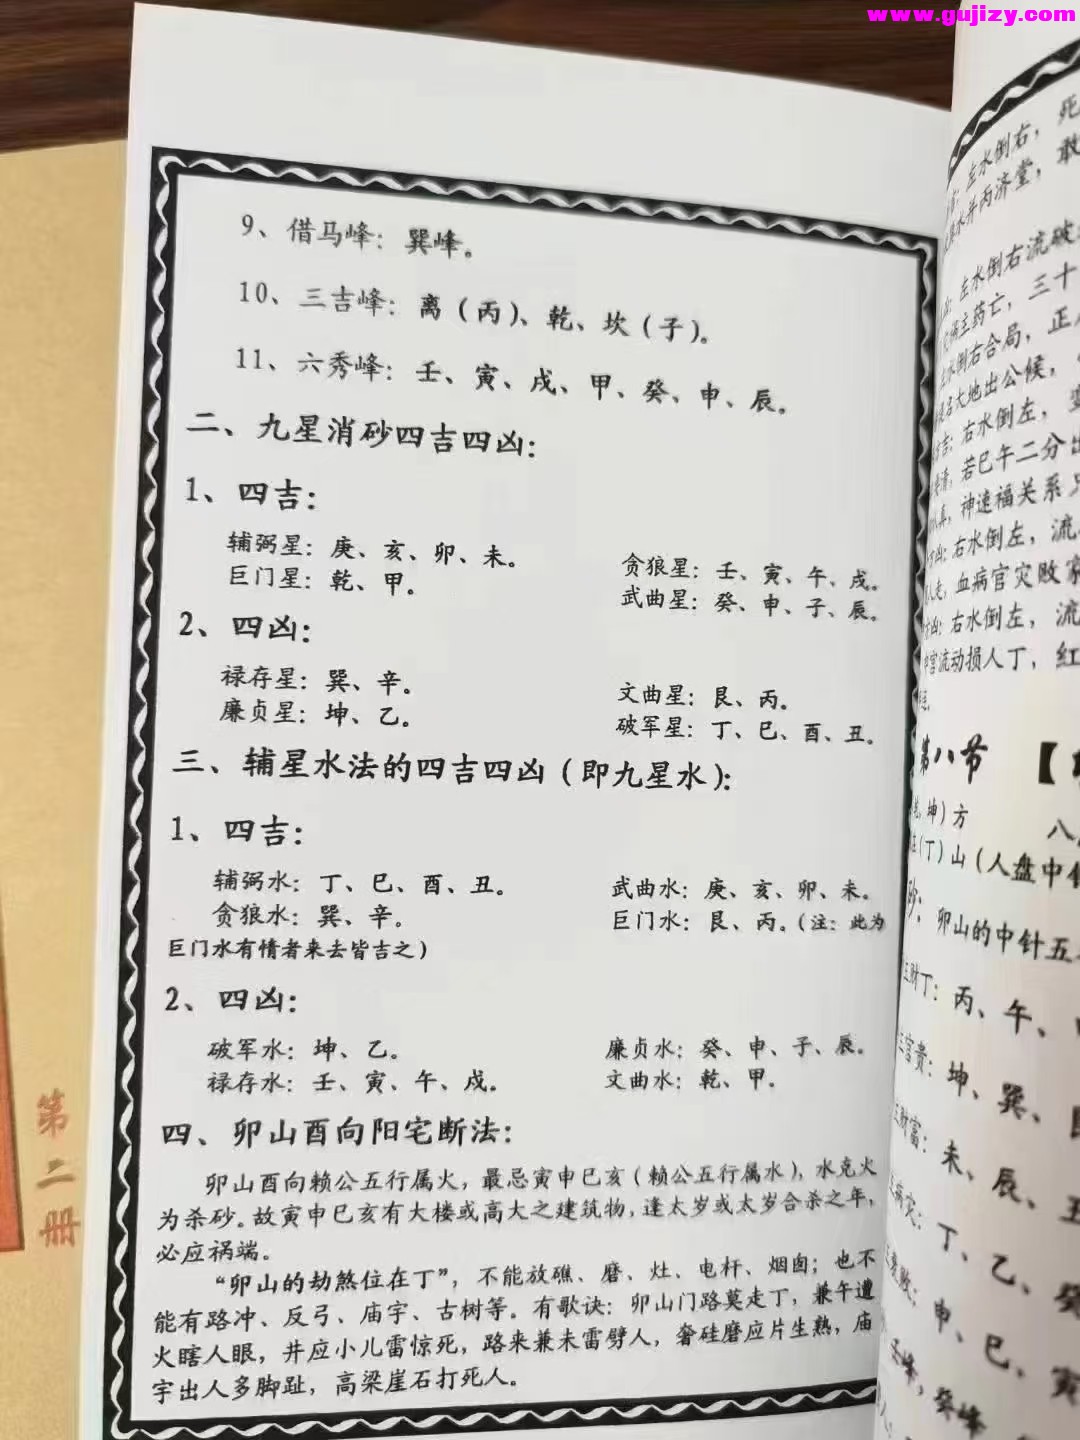 www.gujizy.com
9、借马峰：巽峰。
10、三吉峰：离（丙）、乾、坎（子）。
11、六秀峰：壬、寅、戌、甲、癸、申、辰。
二、九星消砂四吉四凶：
1、四吉：
辅弼星：庚、亥、卯、未。
贪狼星：壬、寅、午、戌。
巨门星：乾、甲。
武曲星：癸、申、子、辰。
2、四凶：
禄存星：巽、辛。
文曲星：艮、丙。
廉贞星：坤、乙。
破军星：丁、巳、酉、丑。
三、辅星水法的四吉四凶（即九星水）：
1、四吉：
辅弼水：丁、巳、酉、丑。
武曲水：庚、亥、卯、未。
贪狼水：巽、辛。
巨门水：艮、丙。（注：此为
巨门水有情者来去皆吉之）
2、四凶：
破军水：坤、乙。
廉贞水：癸、申、子、辰。
禄存水：壬、寅、午、戌。
文曲水：乾、甲。
四、卯山酉向阳宅断法：
卯山酉向赖公五行属火，最忌寅申巳亥（赖公五行属水），水克火
为杀砂。故寅申巳亥有大楼或高大之建筑物，逢太岁或太岁合杀之年，
必应祸端。
“卯山的劫煞位在丁”，不能放礁、磨、灶、电杆、烟囱；也不
能有路冲、反弓、庙宇、古树等。有歌诀：卯山门路莫走丁，兼午遭
火瞎人眼，井应小儿雷惊死，路来兼未雷劈人，奢硅磨应片生熟，庙
宇出人多脚趾，高梁崖石打死人。
第二册
左水倒右，死
水并丙济堂，敢
左水倒右流破
主药亡，三十
水倒右合局，正
大地出公候，
吉：右水倒左，
清，若巳午二分出
真，神速福关系
凶：右水倒左，流
人走，血病官灾败家
凶：右水倒左，流
宫流动损人丁，红
第八节 【
坤）方
八
（丁）山（人盘中
砂：卯山的中针五
财丁：丙、午、
富贵：坤、巽、
财富：未、辰、丑
病灾：丁、乙、癸
败：申、巳、寅
壬峰，癸峰